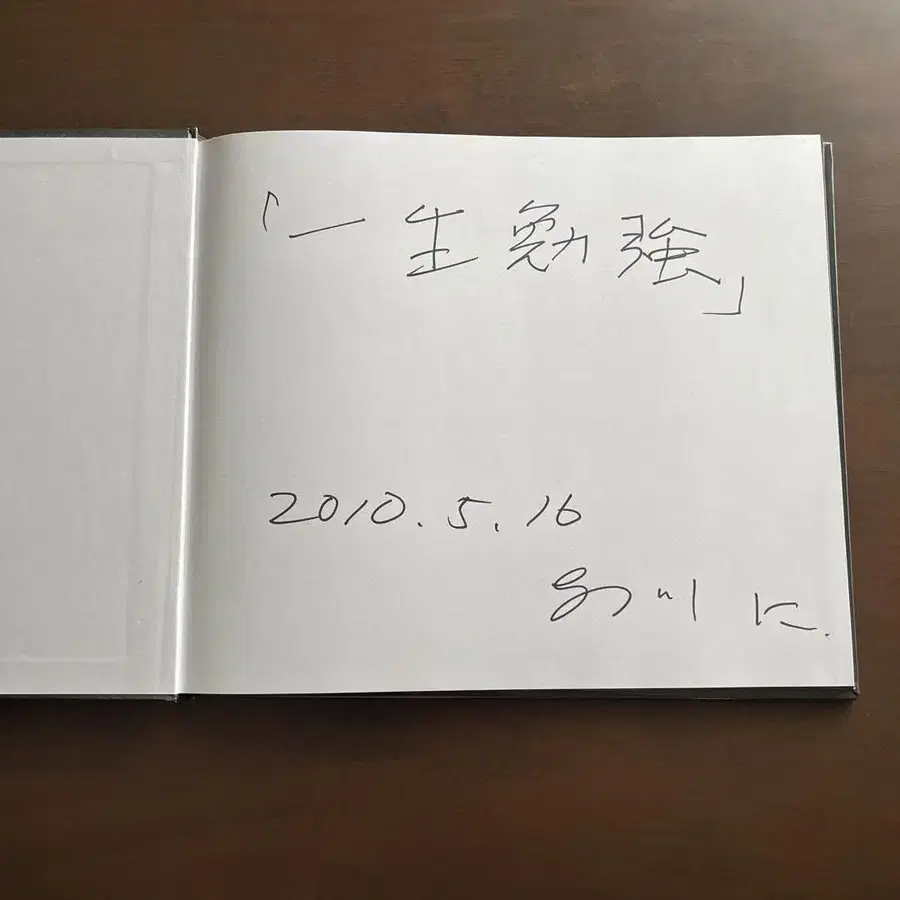 「一生勉強」
2010.5.16